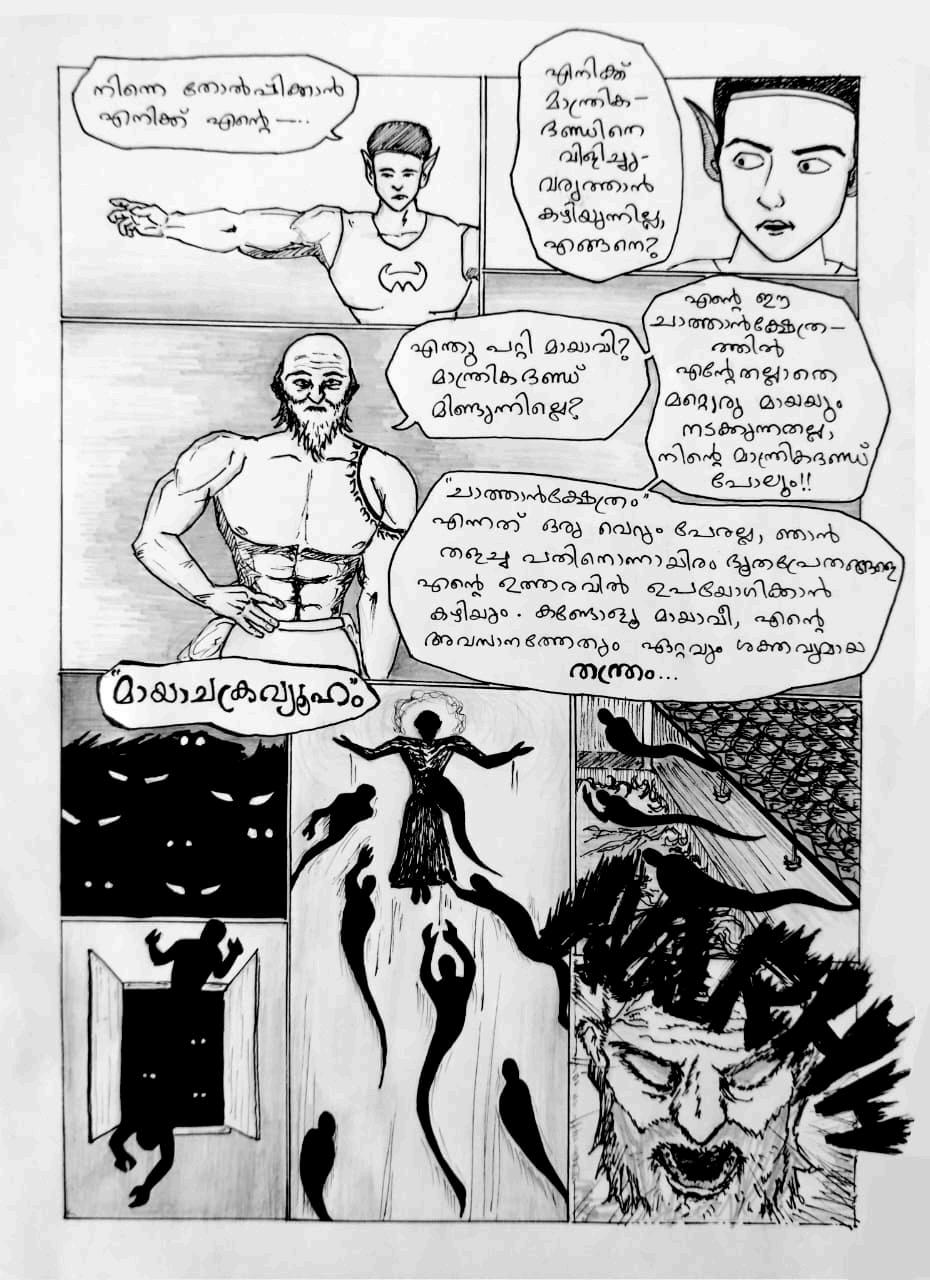 നിന്നെ തോൽപ്പിക്കാൻ
എനിക്ക് എന്റെ —...
എനിക്ക്
മാന്ത്രിക–
ദണ്ഡിനെ
വിളിച്ചു-
വരുത്താൻ
കഴിയുന്നില്ല,
എങ്ങനെ?
എന്തു പറ്റി മായാവി?
മാന്ത്രികദണ്ഡ്
മിണ്ടുന്നില്ലെ?
എന്റെ ഈ
ചാത്താൻക്ഷേത്ര–
ത്തിൽ
എന്റേതല്ലാതെ
മറ്റൊരു മായയും
നടക്കുന്നതല്ല,
നിന്റെ മാന്ത്രികദണ്ഡ്
പോലും!!
"ചാത്താൻക്ഷേത്രം"
എന്നത് ഒരു വെറും പേരല്ല, ഞാൻ
തളച്ച പതിനൊന്നായിരം ഭൂതപ്രേതങ്ങളെ
എന്റെ ഉത്തരവിൽ ഉപയോഗിക്കാൻ
കഴിയും. കണ്ടോളൂ മായാവീ, എന്റെ
അവസാനത്തേതും ഏറ്റവും ശക്തവുമായ
തന്ത്രം...
"മായാചക്രവ്യൂഹം"